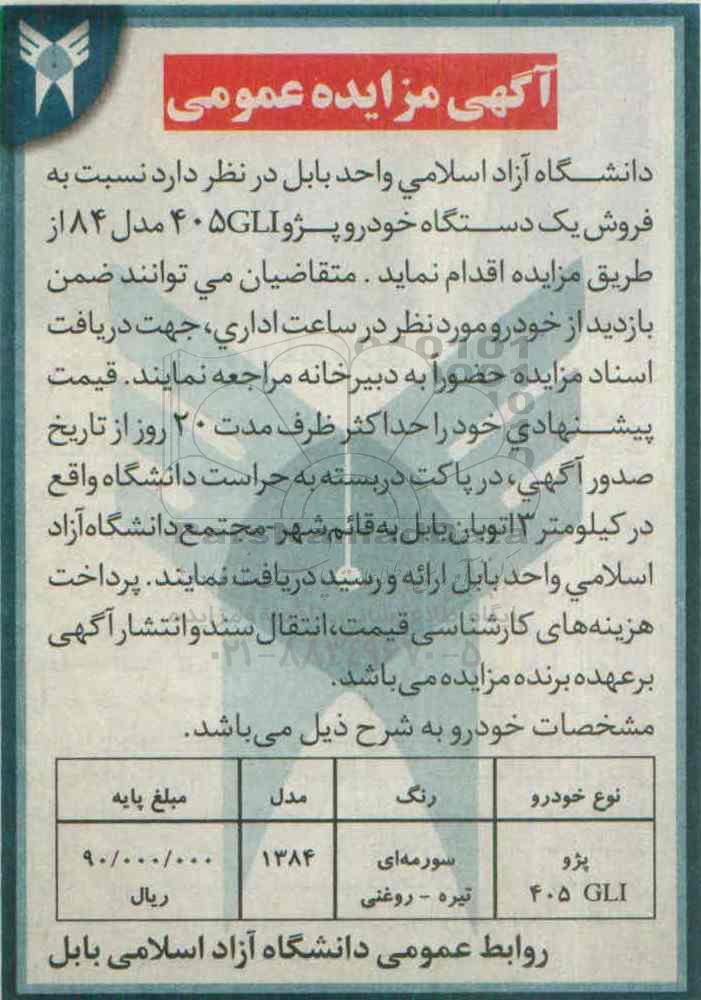 آگهی مزایده عمومی
دانشگاه آزاد اسلامي واحد بابل در نظر دارد نسبت به
فروش یک دستگاه خودرو پژو ۴۰۵GLI مدل ۸۴ از
طریق مزایده اقدام نماید . متقاضیان مي توانند ضمن
بازدید از خودرو مورد نظر در ساعت اداري، جهت دریافت
اسناد مزایده حضوراً به دبیرخانه مراجعه نمایند. قیمت
پیشنهادي خود را حداکثر ظرف مدت ۲۰ روز از تاریخ
صدور آگهي، در پاکت دربسته به حراست دانشگاه واقع
در کیلومتر ۳ اتوبان بابل به قائم شهر-مجتمع دانشگاه آزاد
اسلامي واحد بابل ارائه و رسید دریافت نمایند. پرداخت
هزینه‌های کارشناسی قیمت، انتقال سند و انتشار آگهی
برعهده برنده مزایده می‌باشد.
مشخصات خودرو به شرح ذیل می‌باشد.
نوع خودرو رنگ مدل مبلغ پایه
پژو سورمه‌ای ۱۳۸۴ ۹۰/۰۰۰/۰۰۰
۴۰۵ GLI تیره - روغنی ریال
روابط عمومی دانشگاه آزاد اسلامی بابل